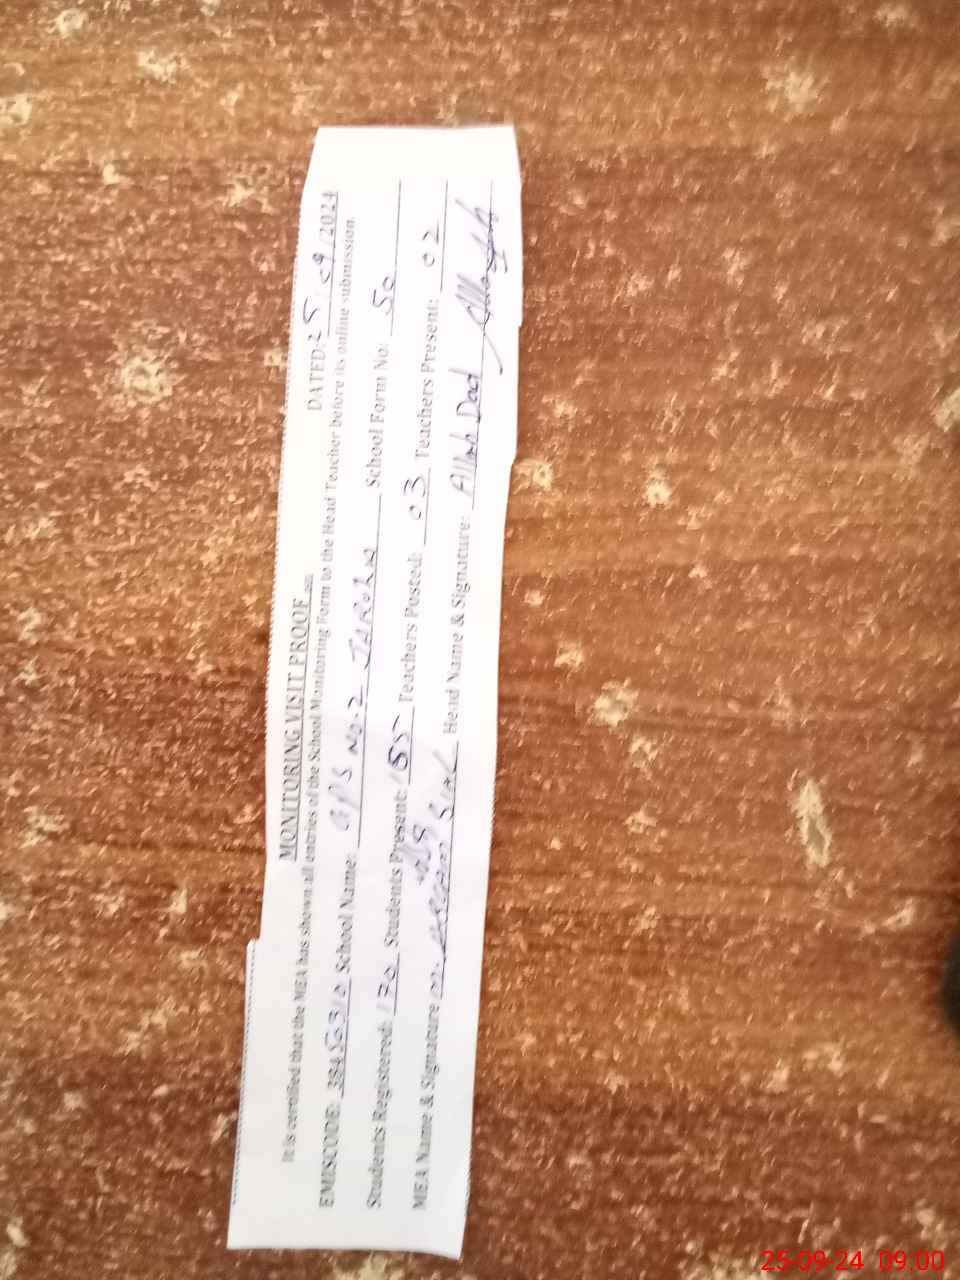 MONITORING VISIT PROOF
DATED: 25/09/2024
It is certified that the MEA has shown all entries of the School Monitoring Form to the Head Teacher before its online submission.
EMISCODE: 38450310 School Name: GPS NO.2 JAROHA School Form No: 50
Students Registered: 170 Students Present: 155 Teachers Posted: 03 Teachers Present: 02
MEA Name & Signature M. SIAL Head Name & Signature: Allah Dad
25-09-24 09:00